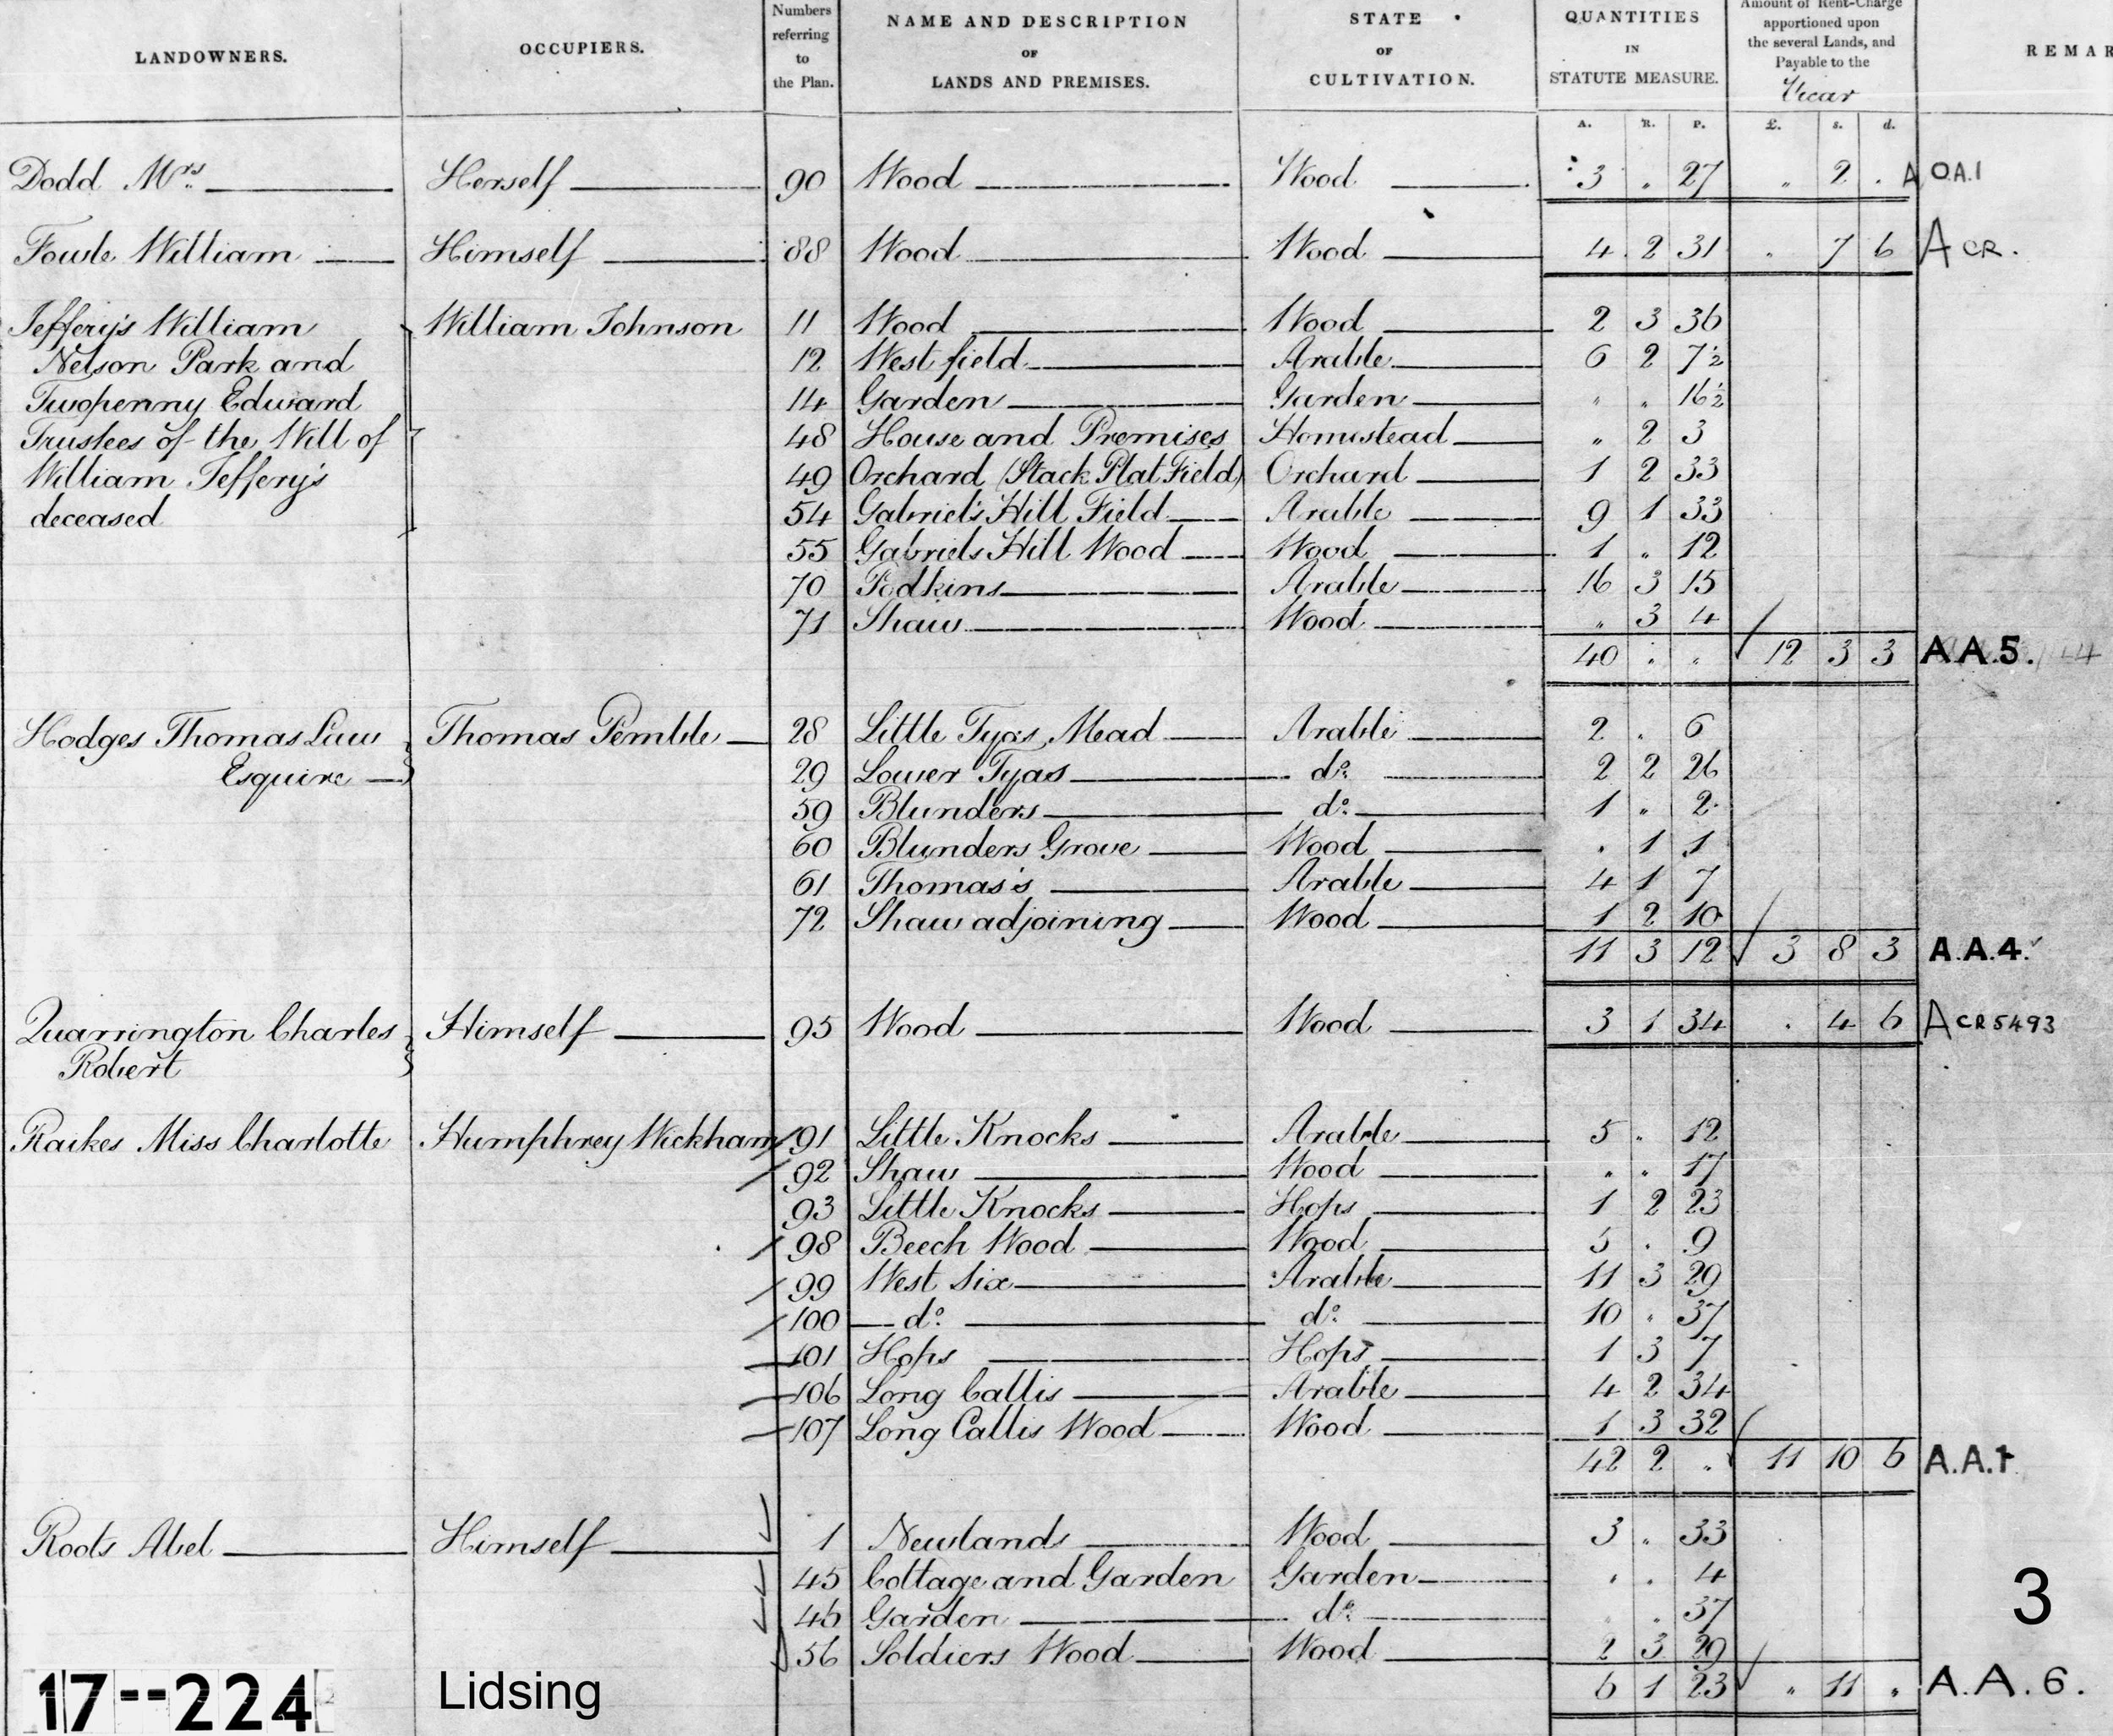 LANDOWNERS. OCCUPIERS. Numbers referring to the Plan. NAME AND DESCRIPTION OF LANDS AND PREMISES. STATE OF CULTIVATION. QUANTITIES IN STATUTE MEASURE. Amount of Rent-Charge apportioned upon the several Lands, and Payable to the Vicar REMAR
A. R. P. £. s. d.
Dodd Mrs Herself 90 Wood Wood 3 " 27 " 2 . A O.A.1
Fowle William Himself 88 Wood Wood 4 2 31 . 7 6 A CR.
Jeffery's William William Johnson 11 Wood Wood 2 3 36
Nelson Park and 12 West field Arable 6 2 7½
Twopenny Edward 14 Garden Garden " " 16½
Trustees of the Will of 48 House and Premises Homestead " 2 3
William Jeffery's 49 Orchard (Stack Plat Field) Orchard 1 2 33
deceased 54 Gabriel's Hill Field Arable 9 1 33
55 Gabriels Hill Wood Wood 1 " 12
70 Podkins Arable 16 3 15
71 Shaw Wood " 3 4
40 . " 12 3 3 A.A.5.
Hodges Thomas Law Thomas Pemble 28 Little Tyas Mead Arable 2 . 6
Esquire 29 Lower Tyas do. 2 2 26
59 Blunders do. 1 " 2
60 Blunders Grove Wood . 1 1
61 Thomas's Arable 4 1 7
72 Shaw adjoining Wood 1 2 10
11 3 12 3 8 3 A.A.4.
Quarrington Charles Himself 95 Wood Wood 3 1 34 . 4 6 A CR 5493
Robert
Raikes Miss Charlotte Humphrey Wickham 91 Little Knocks Arable 5 " 12
92 Shaw Wood " " 17
93 Little Knocks Hops 1 2 23
98 Beech Wood Wood 5 . 9
99 West Six Arable 11 3 29
100 do. do. 10 " 37
101 Hops Hops 1 3 7
106 Long Callis Arable 4 2 34
107 Long Callis Wood Wood 1 3 32
42 2 " 11 10 6 A.A.1
Roots Abel Himself 1 Newlands Wood 3 " 33
45 Cottage and Garden Garden . . 4
46 Garden do. . . 37
3
56 Soldiers Wood Wood 2 3 29
6 1 23 " 11 " A.A.6.
17--224 Lidsing